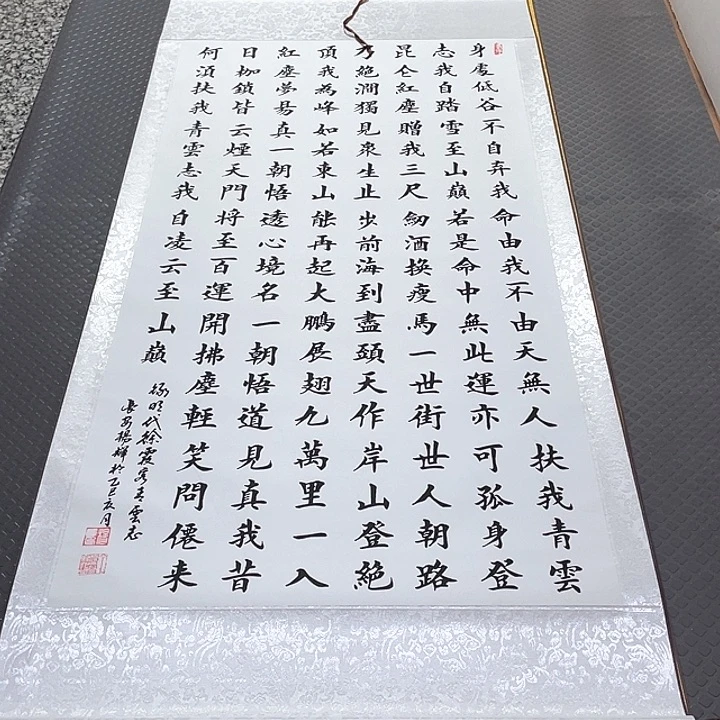 身處低谷不自弃我命由我不由天無人扶我青雲
志我自踏雪至山巔若是命中無此運亦可孤身登
昆仑紅塵贈我三尺劒酒换瘦馬一世街世人朝路
乃絕澗獨見衆生止步前海到盡頭天作岸山登絕
頂我為峰如若東山能再起大鵬展翅九萬里一入
紅塵夢易真一朝悟透心境名一朝悟道見真我昔
日枷鎖皆云煙天門将至百運開拂塵輊笑問僊来
何須扶我青雲志我自凌云至山巔
録明代徐霞客青雲志
長安楊輝於乙巳亥月